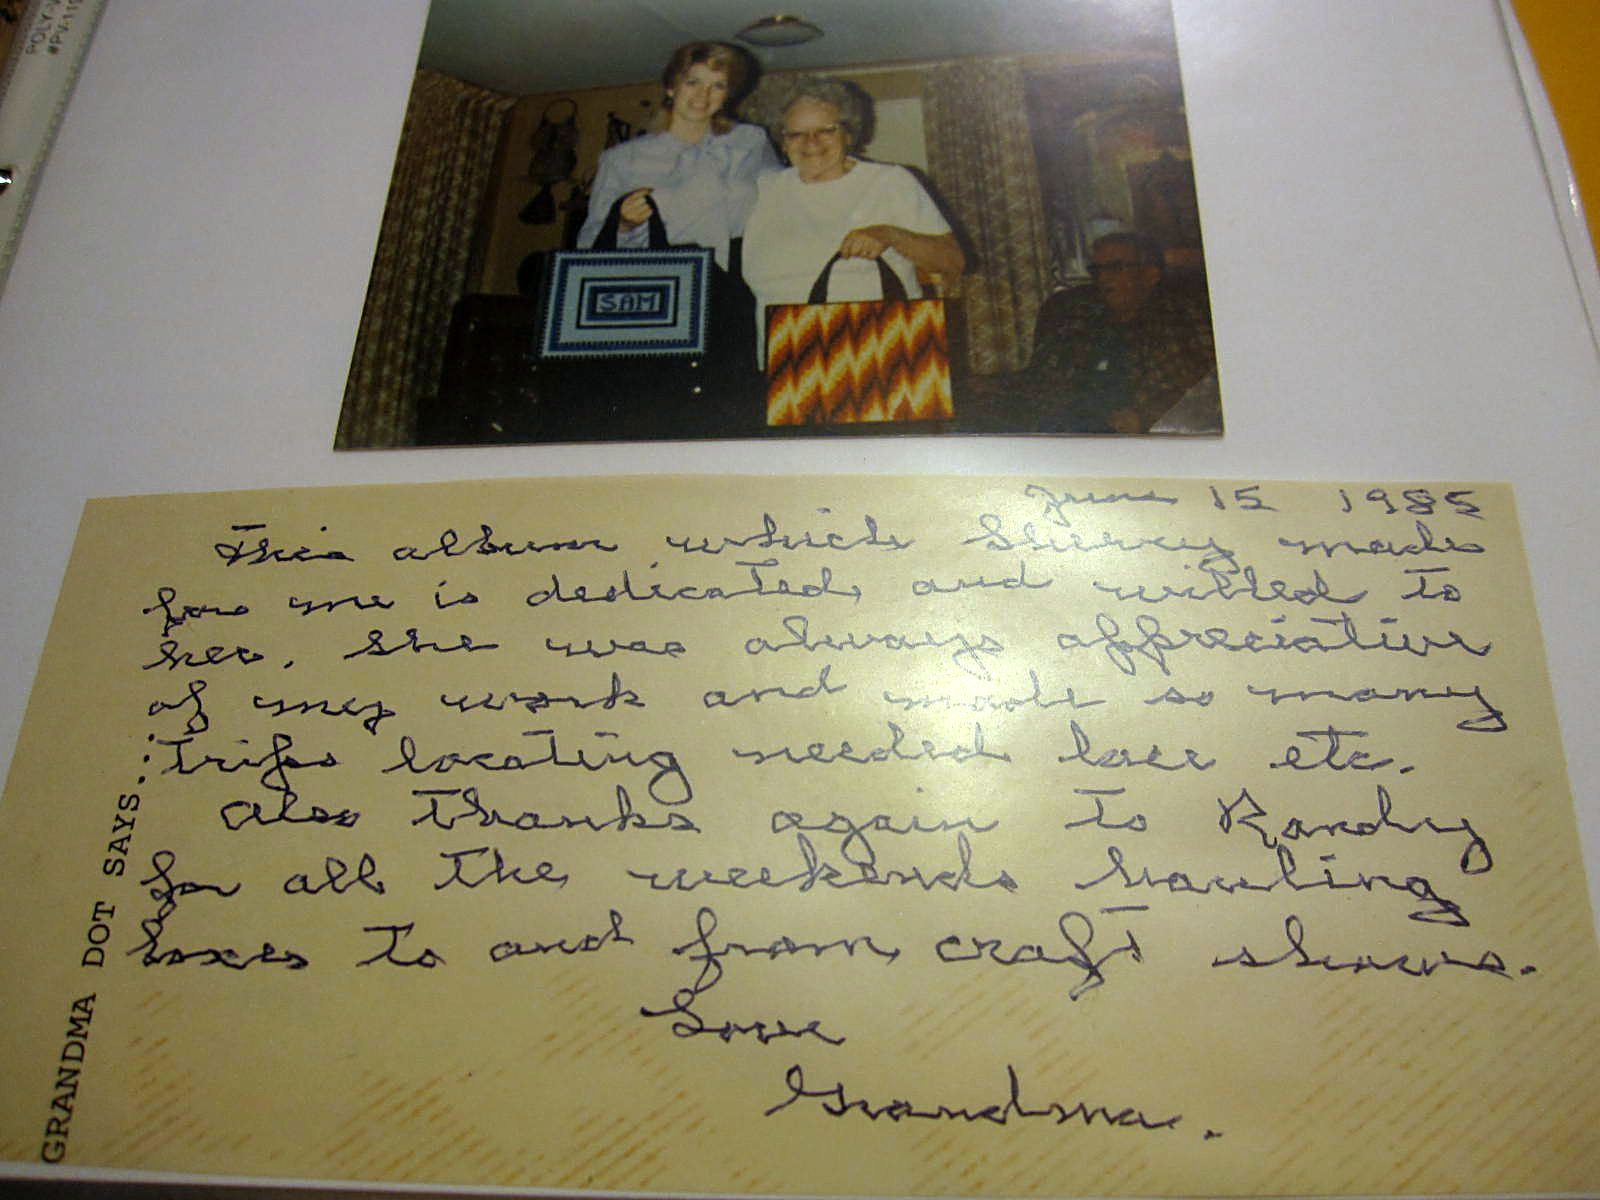 POLY-V
#PV-119
SAM
June 15 1985
This album which Sherry made
for me is dedicated, and willed to
her. She was always appreciative
of my work and made so many
trips locating needed lace etc.
Also thanks again to Randy
for all the weekends hauling
boxes to and from craft shows.
Love
Grandma.
GRANDMA DOT SAYS...